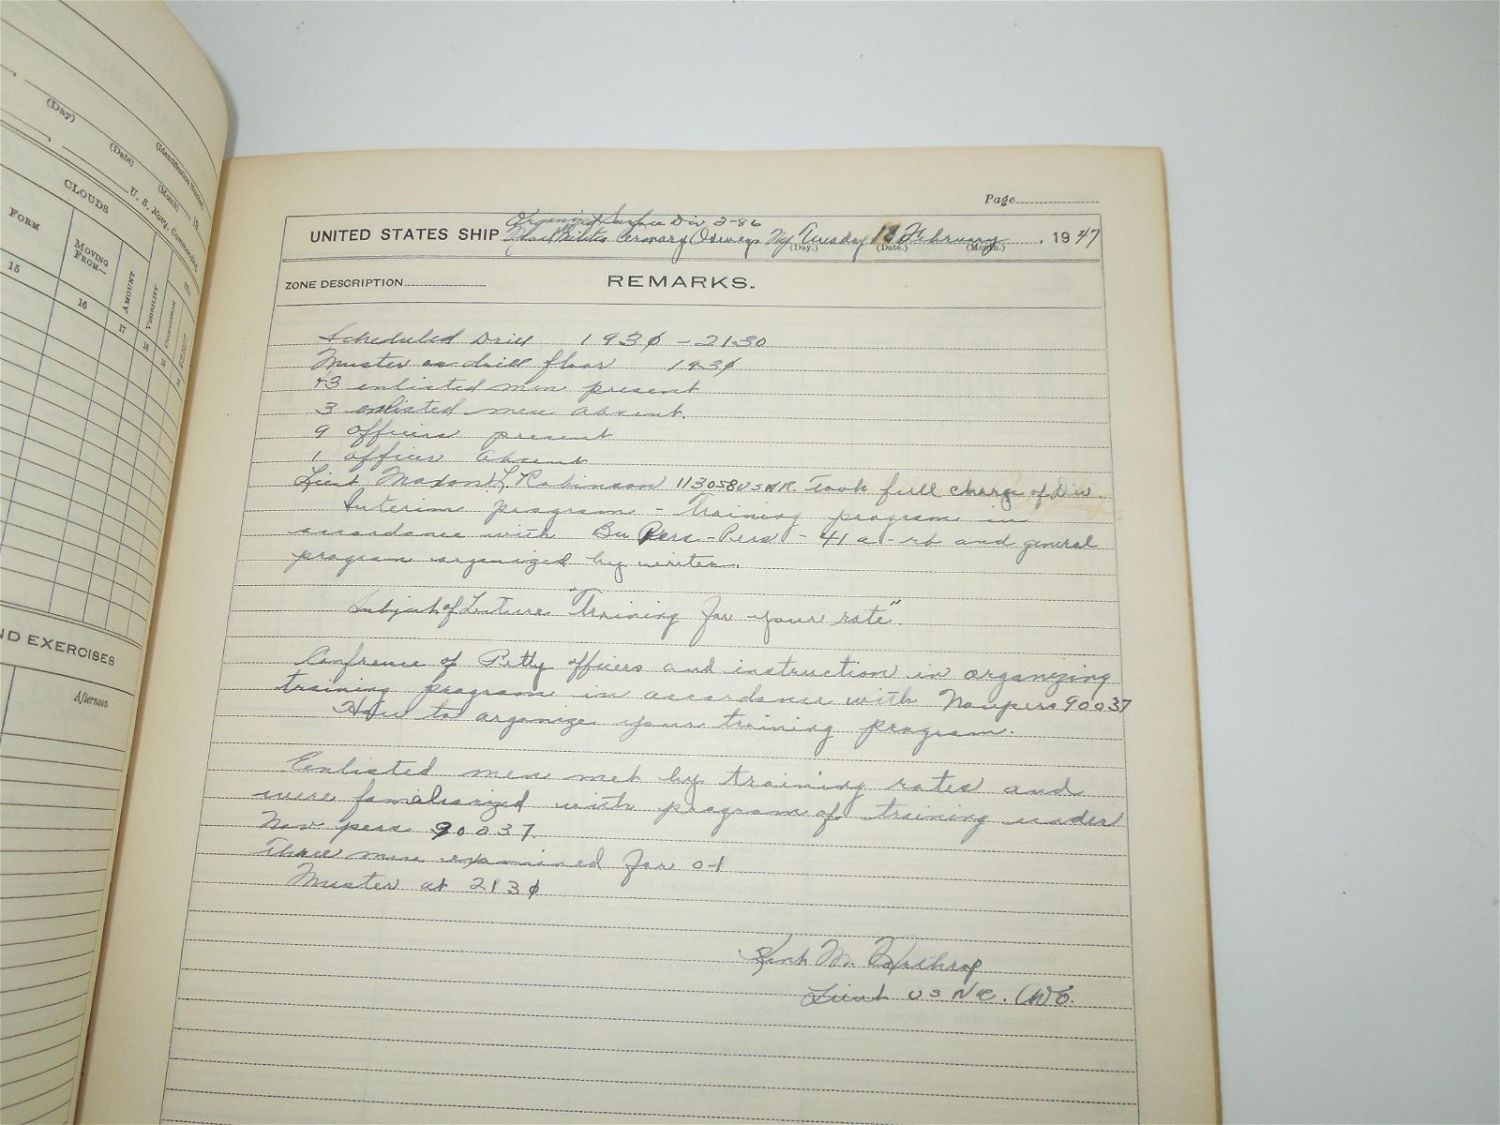 (Identification Number)
(Day)
(Date)
(Month)
19
U. S. Navy, Commander
CLOUDS
FORM
MOVING FROM—
AMOUNT
VISIBILITY
CONDITION
15
16
17
18
ND EXERCISES
Afternoon
Page
Organized Surface Div 3-86
UNITED STATES SHIP Naval Militia Armory Oswego Ny Tuesday 18 February, 1947
(Day.) (Date.) (Month.)
ZONE DESCRIPTION REMARKS.
Scheduled Drill 1930 - 2130
Muster on drill floor 1930
43 enlisted men present
3 enlisted men absent.
9 officers present
1 officer absent
Lieut L. Robinson 113058 USNR. Took full charge of Div.
Interim program - Training program in
accordance with Bu Pers - Pers - 41 a - rb and general
program organized by writer.
Subject of Lecture "Training for your rate".
Confrence of Petty officers and instruction in organizing
training program in accordance with Navpers 90037
How to organize your training program.
Enlisted men met by training rates and
were familiarized with program of training under
Nav pers 90037.
Three men examined for
Muster at 2130
M.
Lieut USNR.